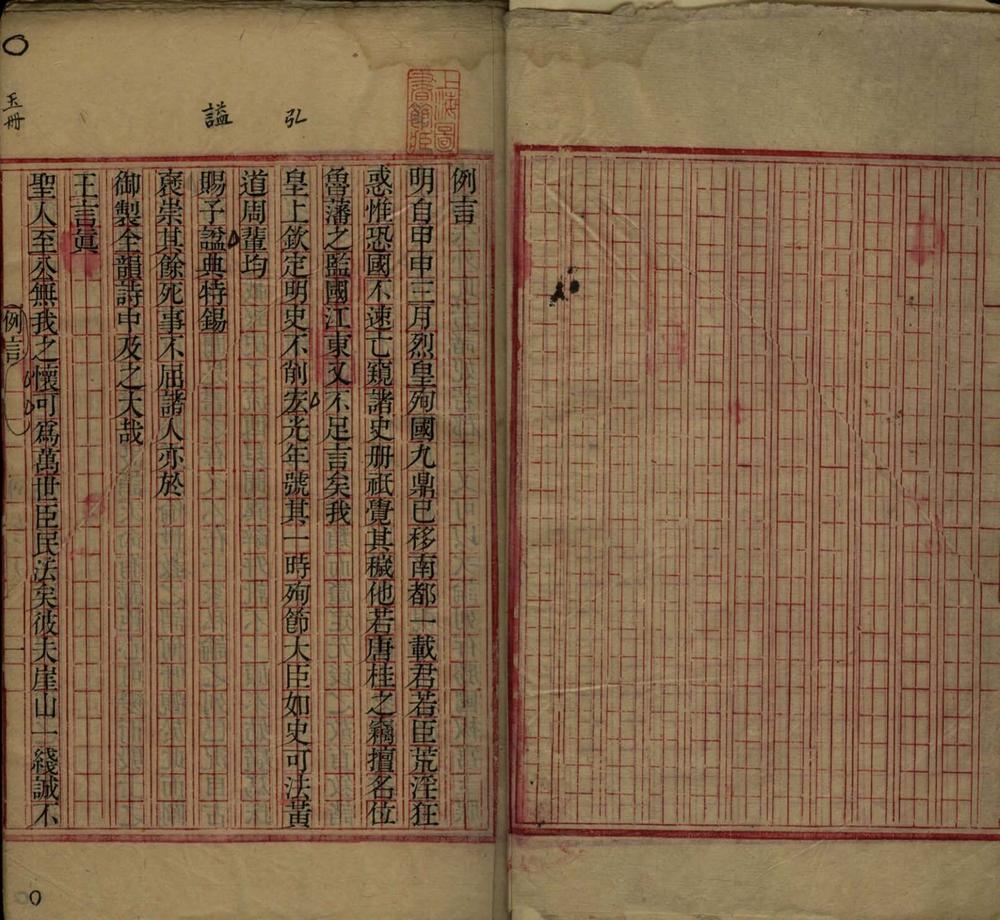 上海圖書館藏
弘
謚
玉冊
例言
明自甲申三月烈皇殉國九鼎已移南都一載君若臣荒淫狂
惑惟恐國不速亡窺諸史册祇覺其穢他若唐桂之竊擅名位
魯藩之監國江東又不足言矣我
皇上欽定明史不削宏光年號其一時殉節大臣如史可法黃
道周輩均
賜予謚典特錫
褒崇其餘死事不屈諸人亦於
御製全韻詩中及之大哉
王言眞
聖人至公無我之懷可爲萬世臣民法矣彼夫崖山一綫誠不
例言
一